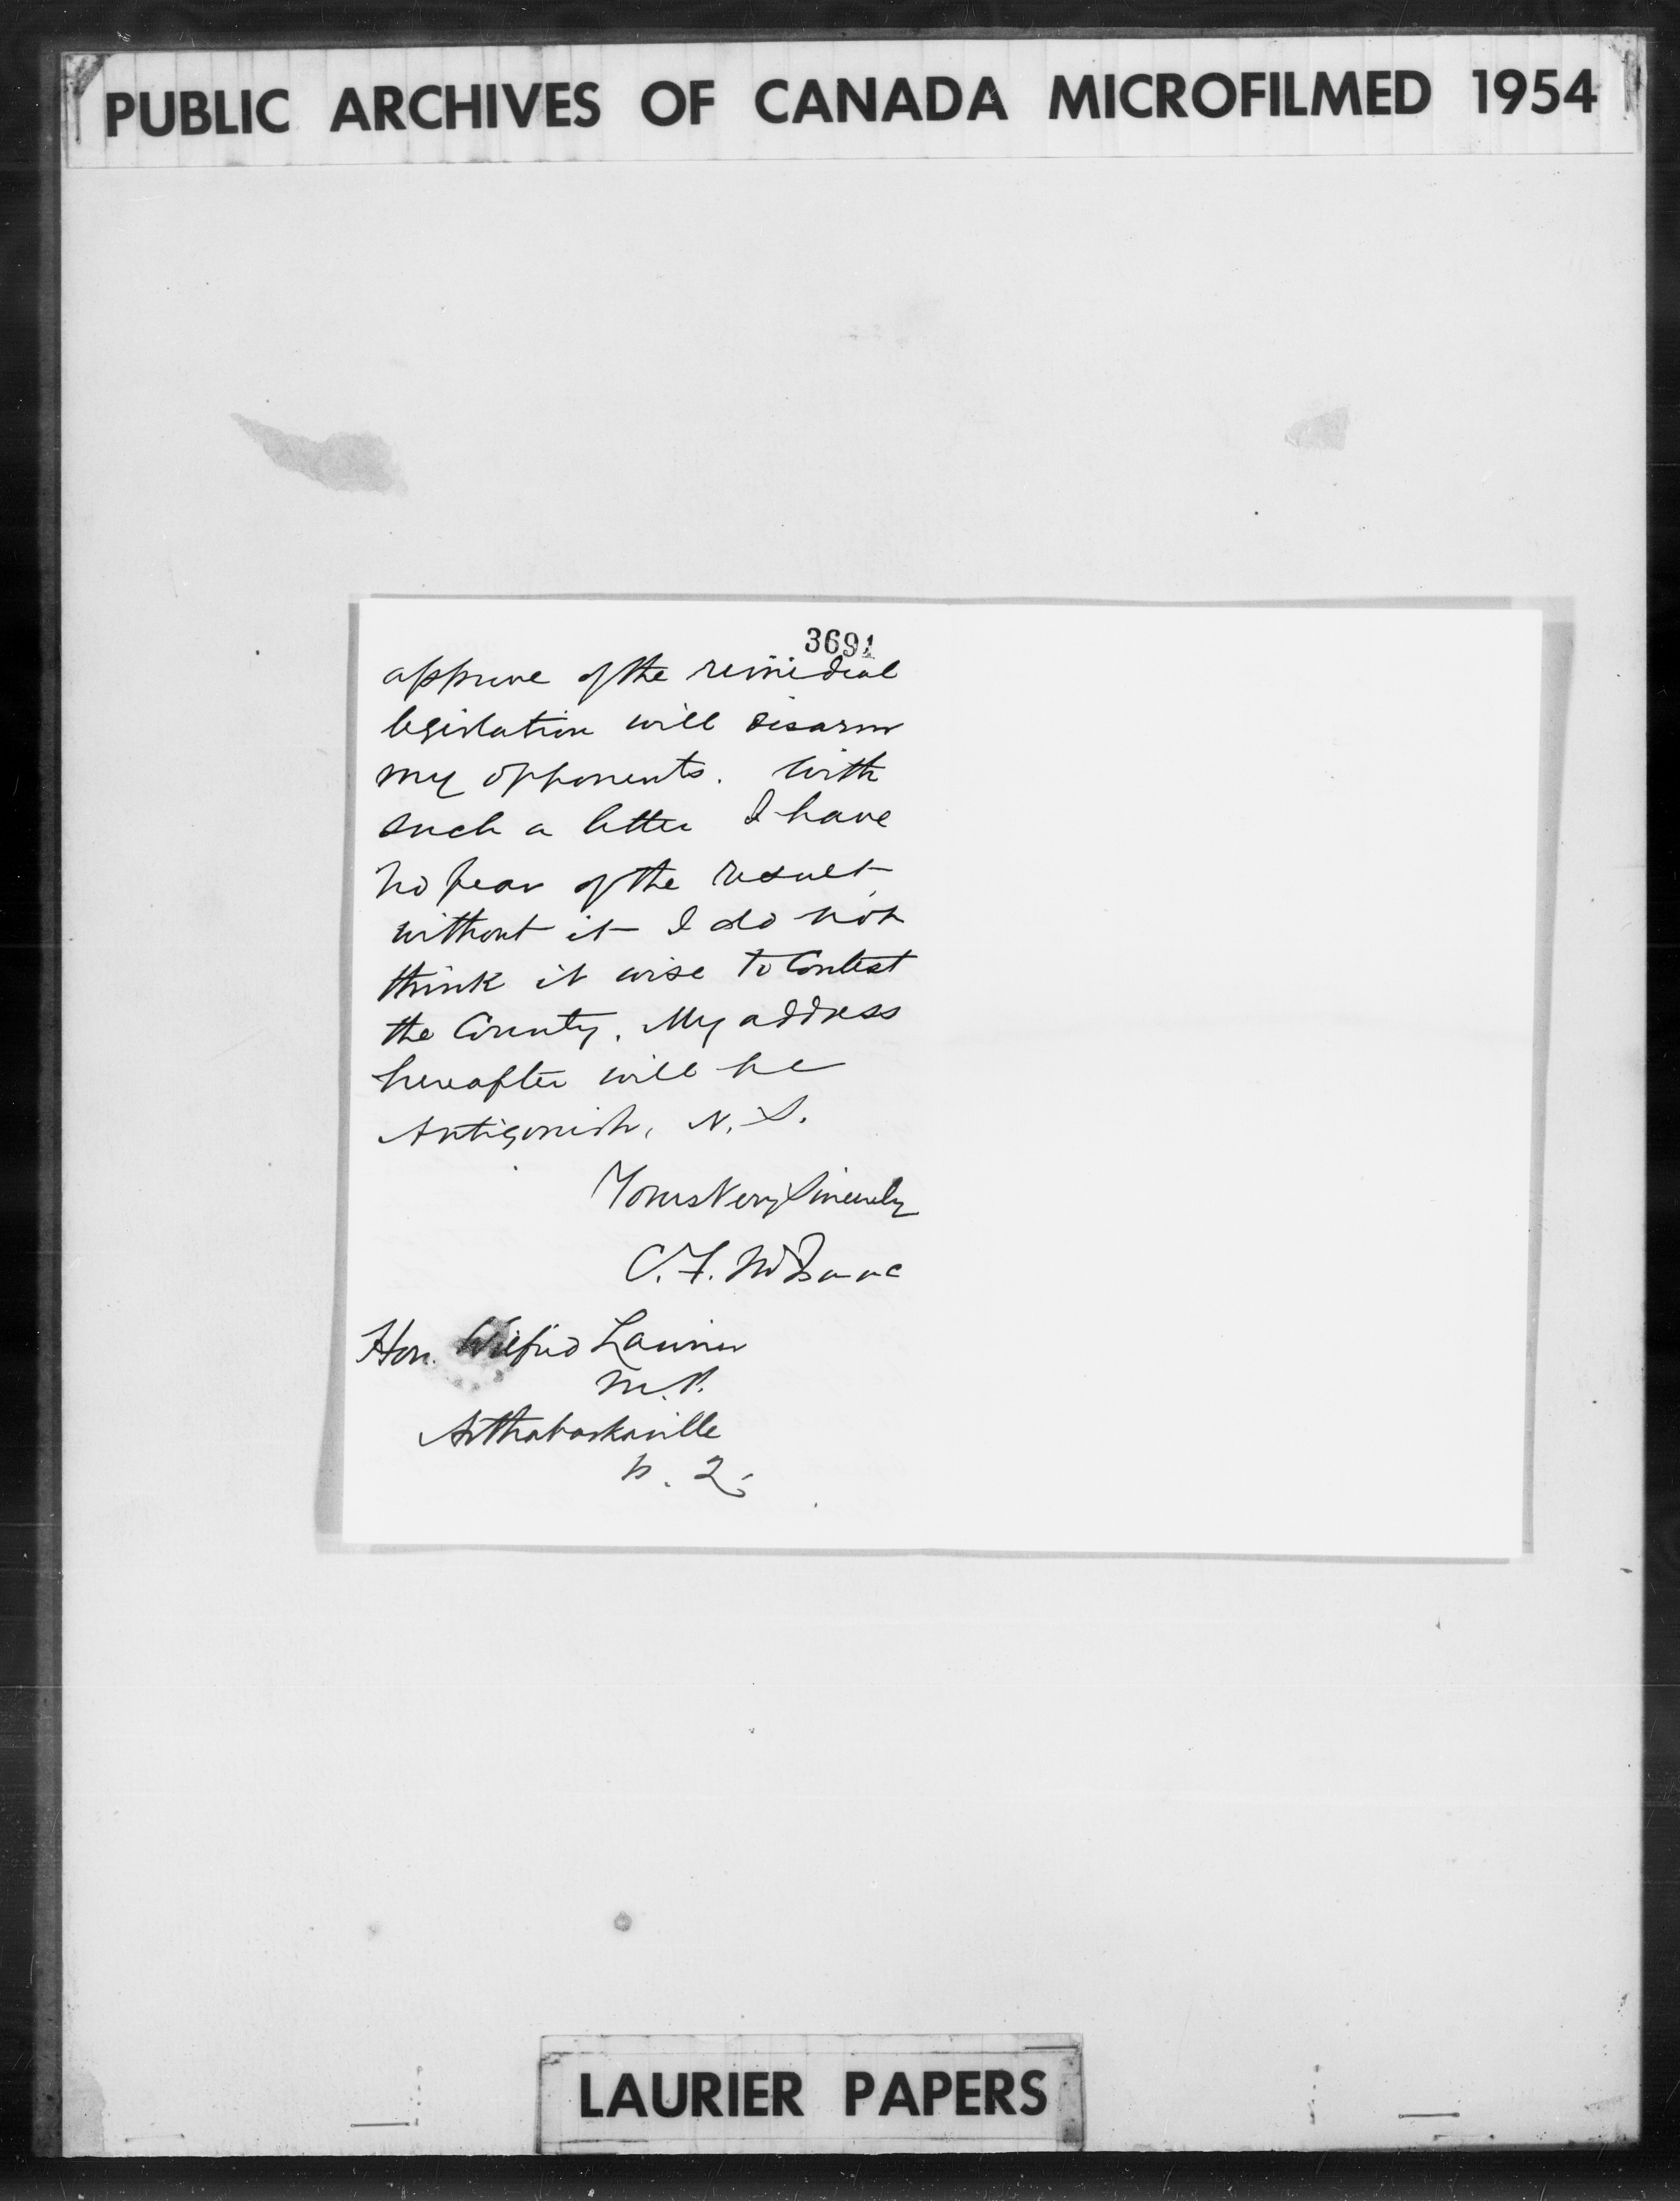 PUBLIC ARCHIVES OF CANADA MICROFILMED 1954
3691
approve of the remedial
legislation will disarm
my opponents. With
such a letter I have
no fear of the result
without it I do not
think it wise to Contest
the County. My address
hereafter will be
Antigonish, N.S.
Yours Very Sincerely
C.F. McIsaac
Hon. Wilfrid Laurier
M.P.
Arthabaskaville
P.Q.
LAURIER PAPERS